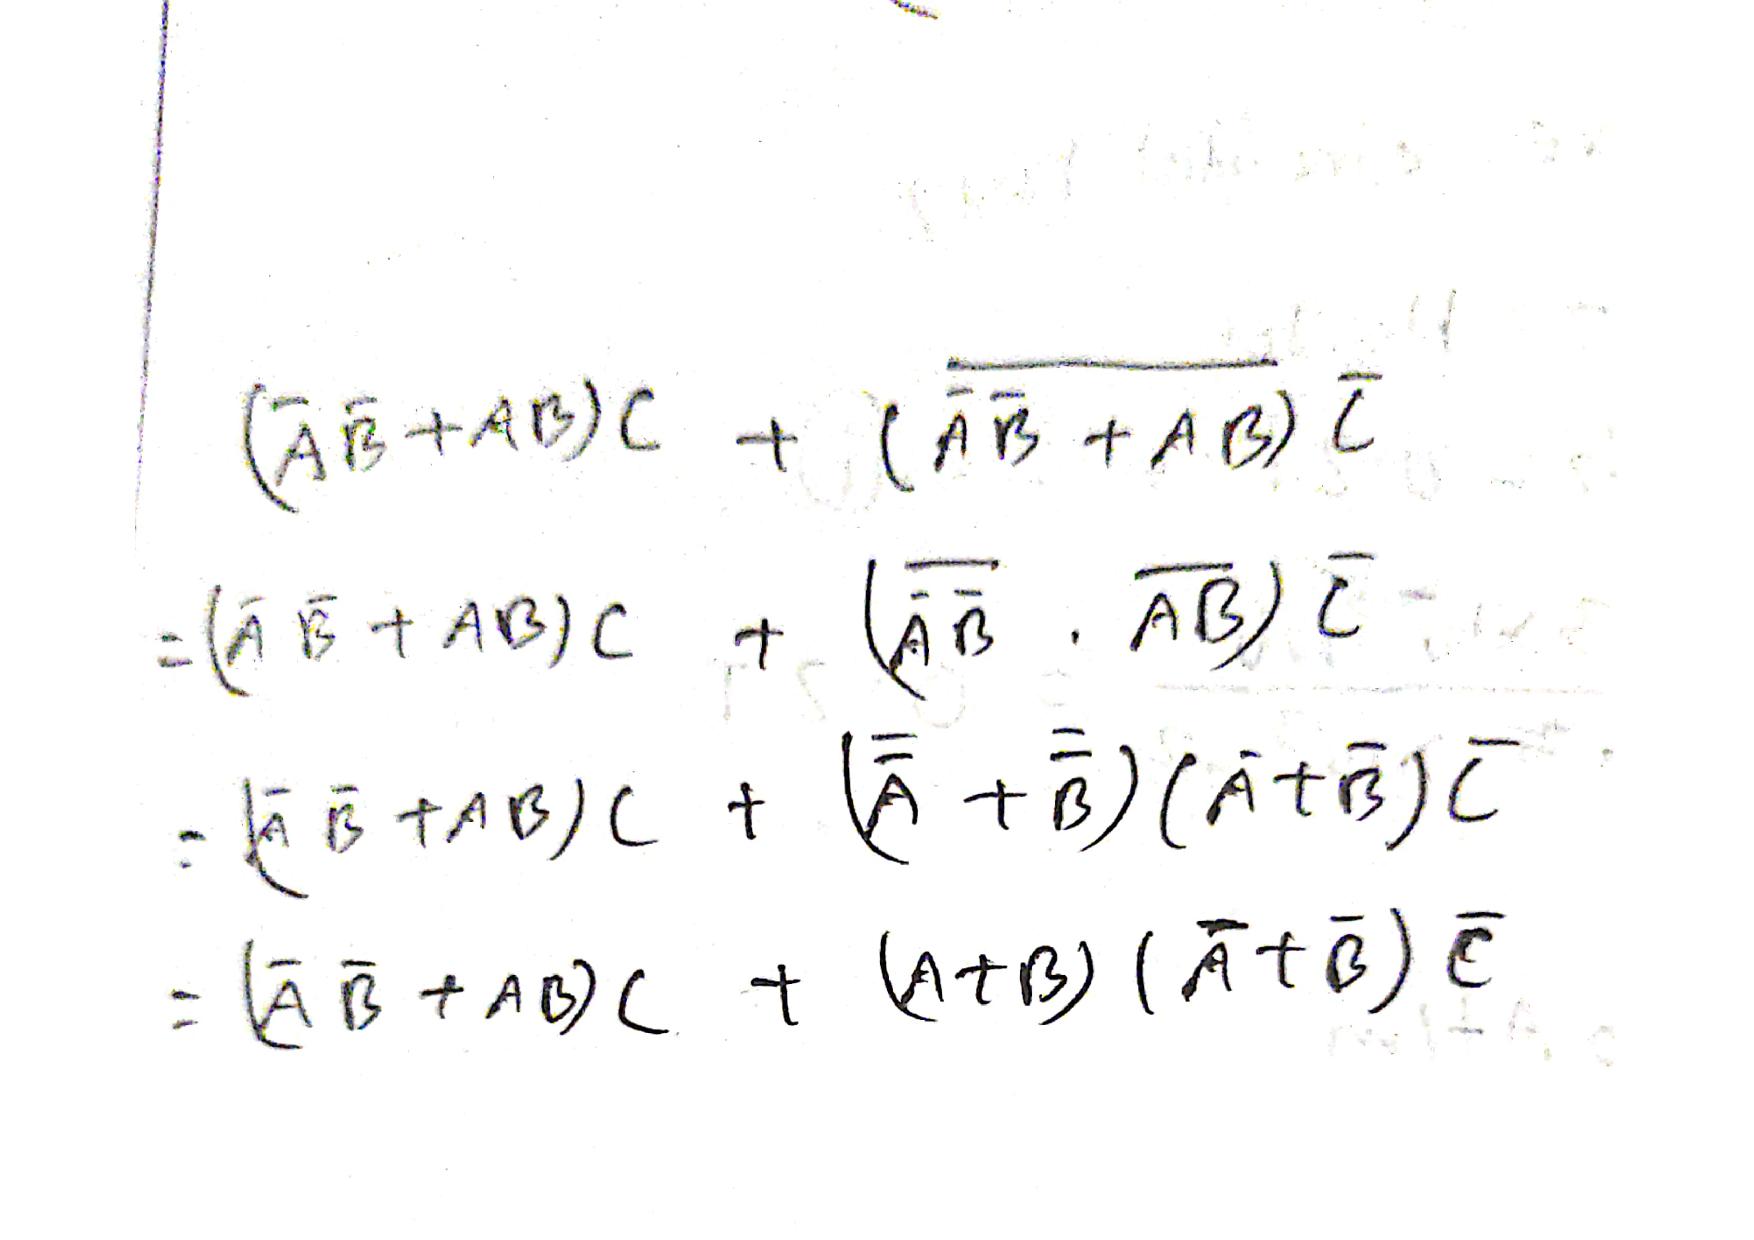 (A̅ B̅ + AB) C + \overline{(A̅ B̅ + AB)} C̅
= (A̅ B̅ + AB) C + (\overline{A̅ B̅} . \overline{AB}) C̅
= (A̅ B̅ + AB) C + (A̿ + B̿) (A̅ + B̅) C̅
= (A̅ B̅ + AB) C + (A + B) (A̅ + B̅) C̅